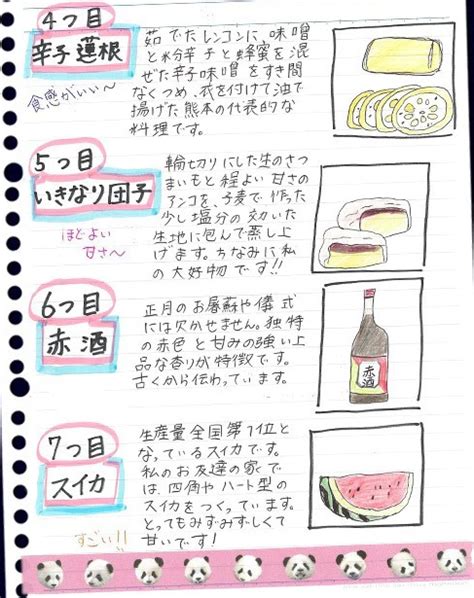 4つ目
辛子蓮根
食感がいい〜
茹でたレンコンに、味噌
と粉辛子と蜂蜜を混
ぜた辛子味噌をすき間
なくつめ、衣を付けて油で
揚げた熊本の代表的な
料理です。
5つ目
いきなり団子
ほどよい
甘さ〜
輪切りにした生のさつ
まいもと程よい甘さの
アンコを、小麦で作った
少し塩分の効いた
生地に包んで蒸し上
げます。ちなみに私
の大好物です!!
6つ目
赤酒
正月のお屠蘇や儀式
には欠かせません。独特
の赤色と甘みの強い上
品な香りが特徴です。
古くから伝わっています。
赤酒
7つ目
スイカ
すごい!!
生産量全国第1位と
なっているスイカです。
私のお友達の家で
は、四角やハート型の
スイカをつくっています。
とってもみずみずしくて
甘いです!